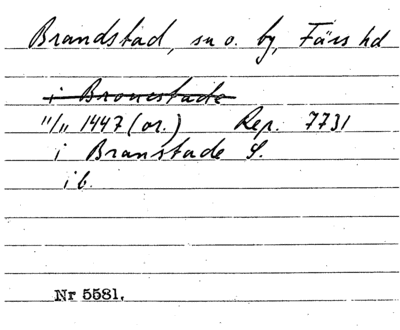 Brandstad, sn o. by, Färs hd
i Bronestade
11/11 1447 (or.) Rep. 7731
i Branstade S.
ib.
Nr 5581.